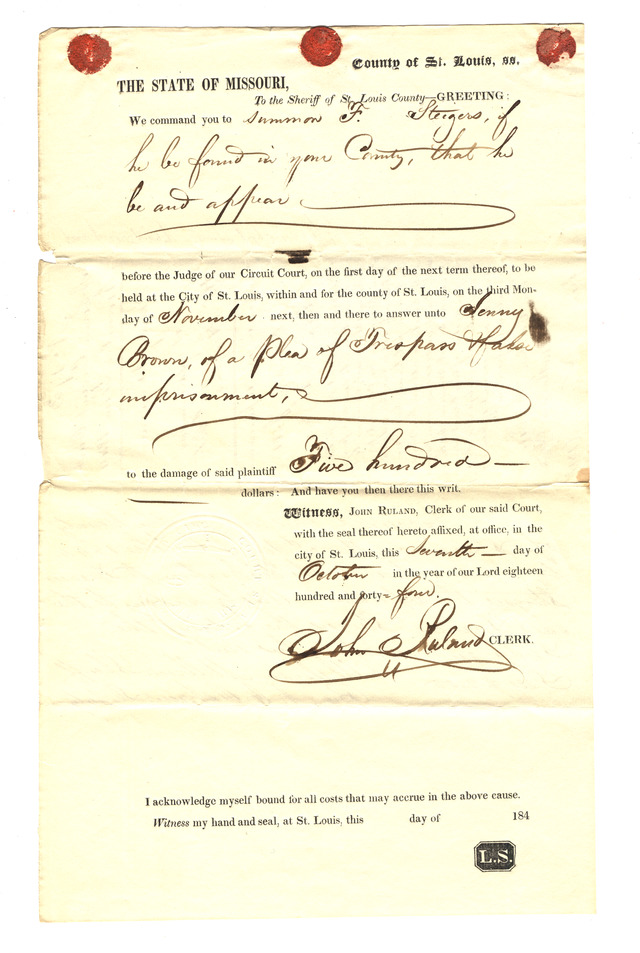 County of St. Louis, ss.
THE STATE OF MISSOURI,
To the Sheriff of St. Louis County—GREETING:
We command you to summon F. Steigers, if
he be found in your County, that he
be and appear
before the Judge of our Circuit Court, on the first day of the next term thereof, to be
held at the City of St. Louis, within and for the county of St. Louis, on the third Mon-
day of November next, then and there to answer unto Jenny
Brown, of a plea of Trespass & false
imprisonment,
to the damage of said plaintiff Five hundred —
dollars: And have you then there this writ.
Witness, JOHN RULAND, Clerk of our said Court,
with the seal thereof hereto affixed, at office, in the
city of St. Louis, this Seventh — day of
October in the year of our Lord eighteen
hundred and forty-four.
John Ruland CLERK.
I acknowledge myself bound for all costs that may accrue in the above cause.
Witness my hand and seal, at St. Louis, this day of 184
L.S.